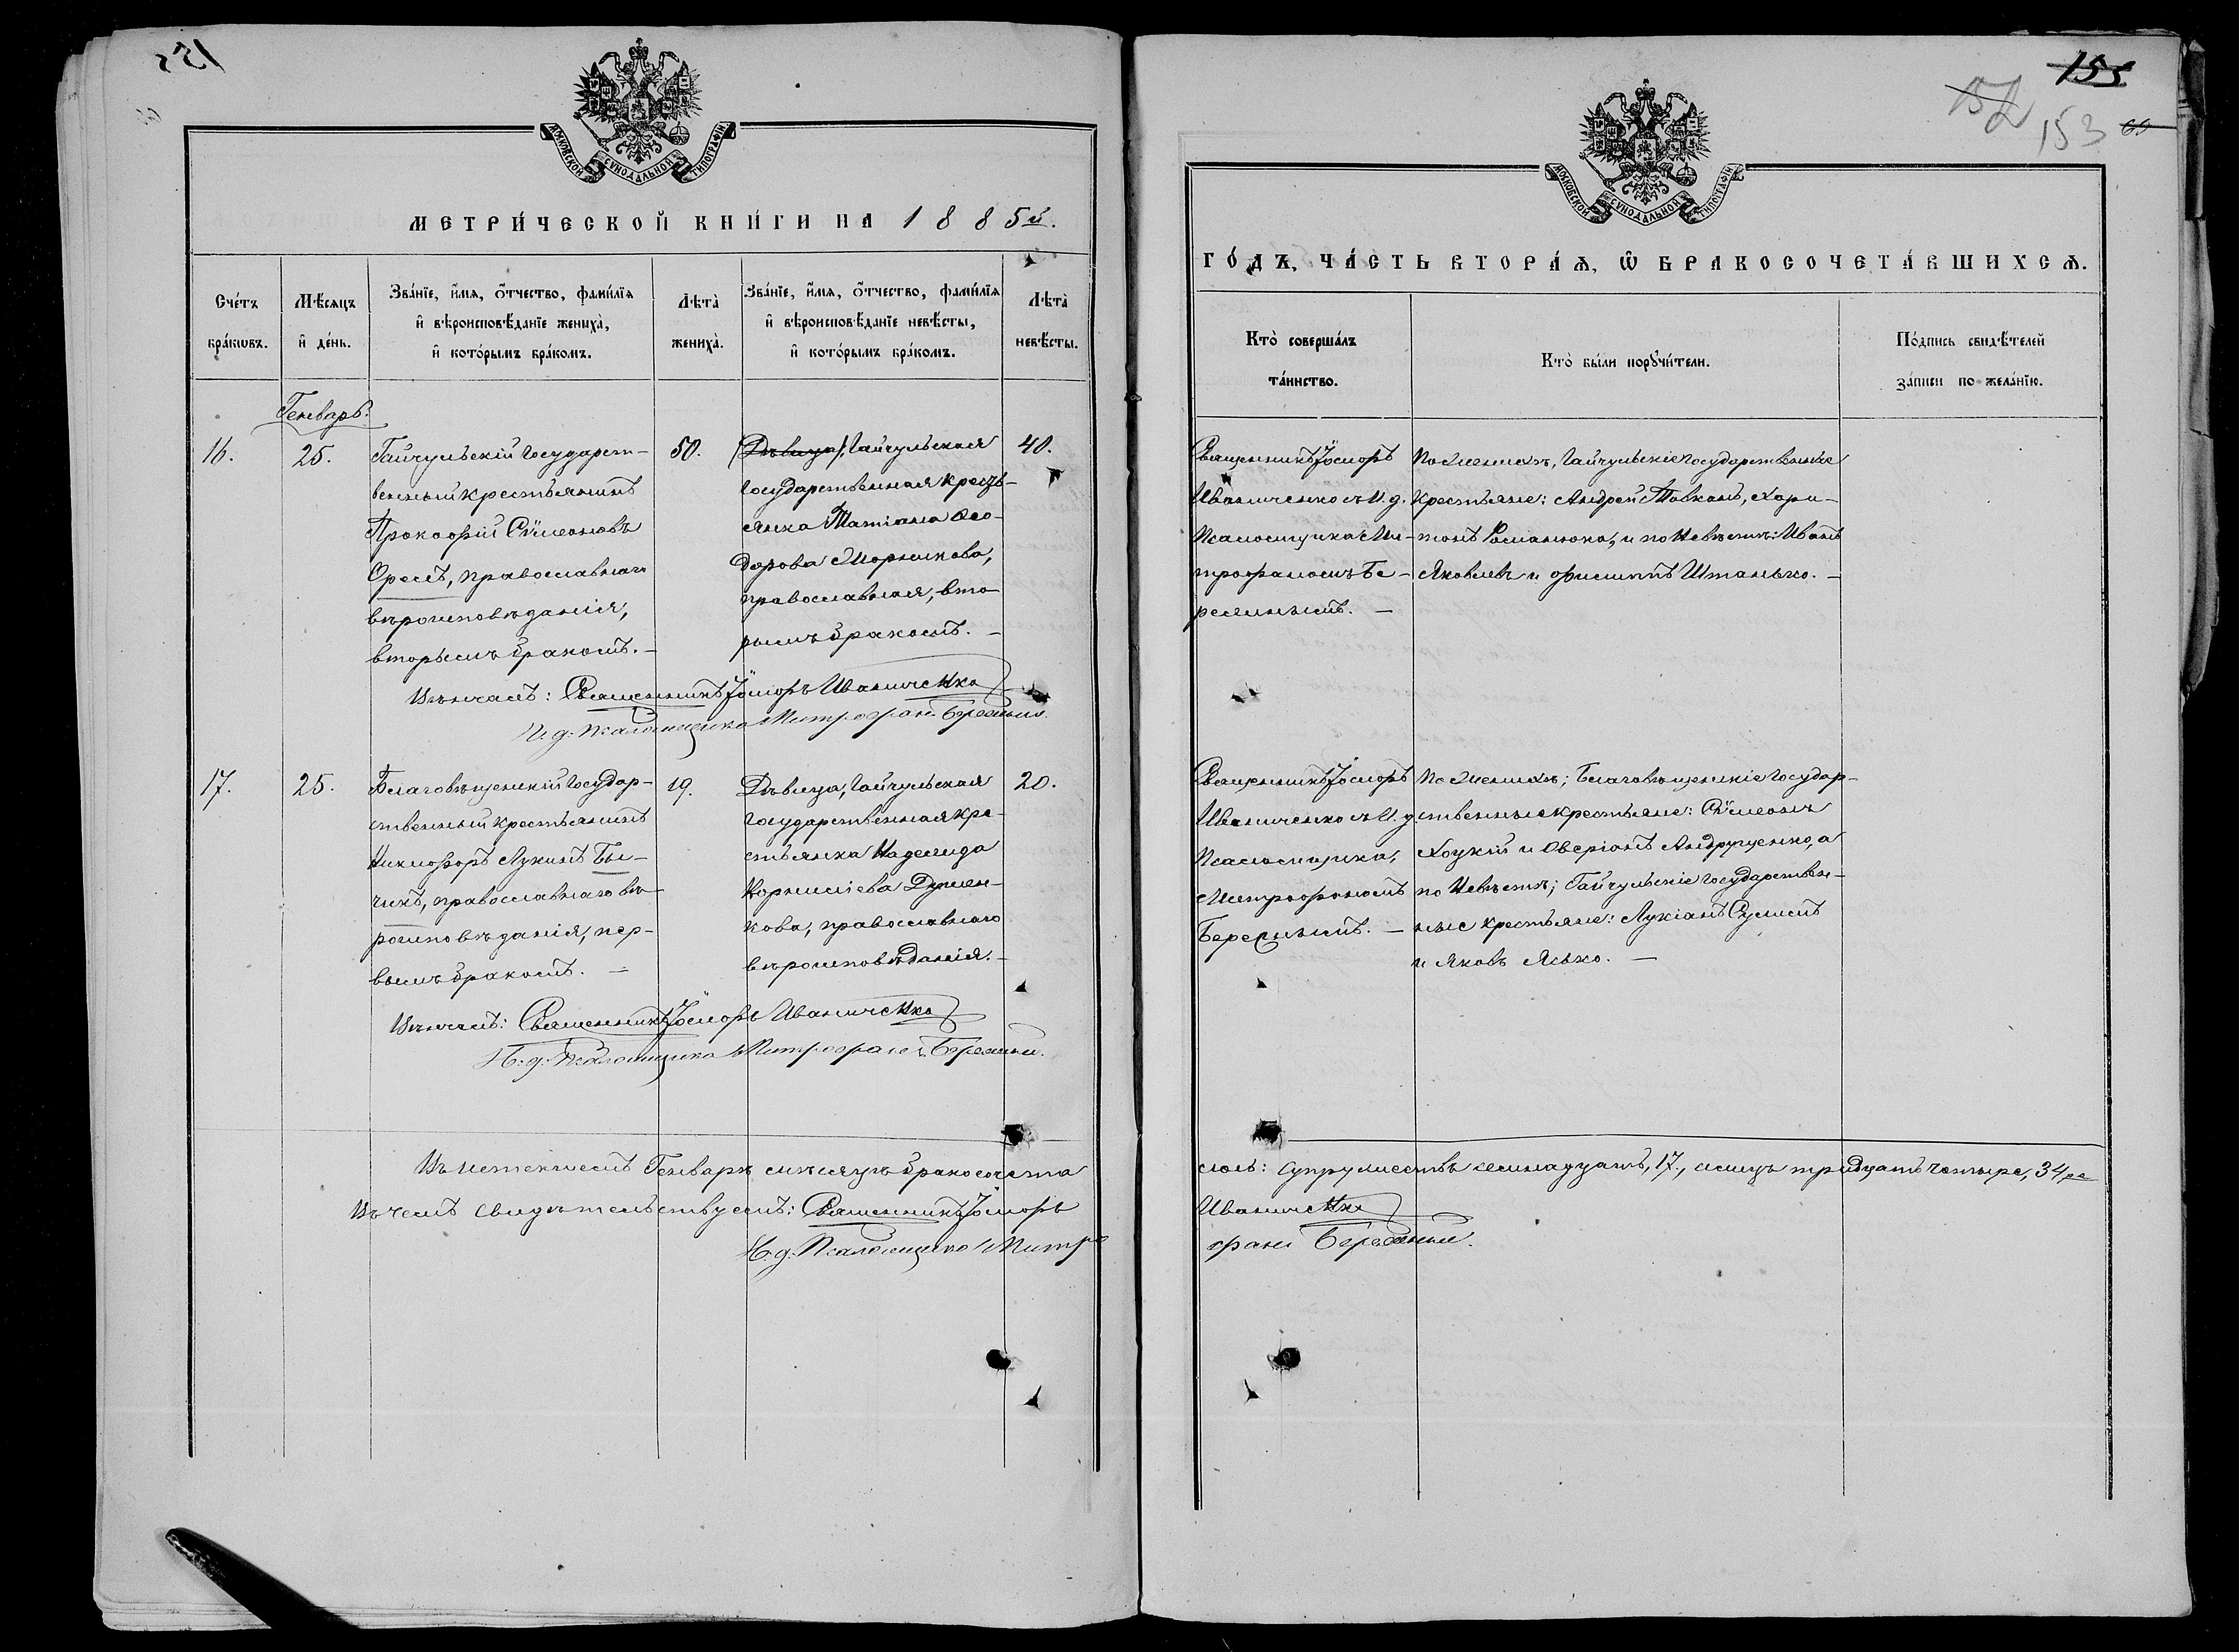 155
МОСКОВСКОЙ СУНОДАЛЬНОЙ ТИПОГРАФІИ
МЕТРИ́ЧЕСКОЙ КНИ́ГИ НА 1885й.
Сче́тъ бра́кѡвъ.
Мѣ́сяцъ и҆ де́нь.
Зва́нїе, и҆́мя, ѻ҆́тчество, фами́лїя
и҆ вѣроисповѣ́данїе жениха̀,
и҆ кото́рымъ бра́комъ.
Лѣта̀ жениха̀.
Зва́нїе, и҆́мя, ѻ҆́тчество, фами́лїя
и҆ вѣроисповѣ́данїе невѣ́сты,
и҆ кото́рымъ бра́комъ.
Лѣта̀ невѣ́сты.
Генварь.
16.
25.
Гайчульскій Государст-
венный крестьянинъ
Прокофій Сѵмеоновъ
Орелъ, православнаго
вѣроисповѣданія,
вторымъ бракомъ.
50.
(Дѣвица), Гайчульская
Государственная кресть-
янка Татіана Ѳео-
дорова Моршкова,
православная, вто-
рымъ бракомъ.
40.
Вѣнчалъ: Священникъ Іоиоръ Иваниченко
И. д. Псаломщика Митрофанъ Бережный.
17.
25.
Благовѣщенскій Государ-
ственный крестьянинъ
Никифоръ Лукинъ Бы-
чикъ, православнаго вѣ-
роисповѣданія, пер-
вымъ бракомъ.
19.
Дѣвица, Гайчульская
Государственная кре-
стьянка Надежда
Корниліева Думен-
кова, православнаго
вѣроисповѣданія.
20.
Вѣнчалъ: Священникъ Иваниченко
И. д. Псаломщика Митрофанъ Бережный.
Въ истекшемъ Генварѣ мѣсяцѣ бракосочета
Въ чемъ свидѣтельствуемъ: Священникъ
И. д. Псаломщика Митро
155
152
153
МОСКОВСКОЙ СУНОДАЛЬНОЙ ТИПОГРАФІИ
ГО́ДЪ, ЧА́СТЬ ВТОРА́Ѧ, Ѡ҆ БРАКОСОЧЕТА́ВШИХСѦ.
Кто̀ соверша́лъ та́инство.
Кто̀ бы́ли порꙋчи́тели.
По́дпись свидѣ́телей за́писи по жела́нїю.
Священникъ
Иваниченко съ И. д.
Псаломщика Ми-
трофаномъ Бе-
режнымъ.
По Женихѣ, Гайчульскіе Государственные
крестьяне: Андрей Товканъ, Хари-
тонъ Романюка, и по Невѣстѣ: Иванъ
Яковлевъ и Филиппъ Штанько.
Священникъ
Иваниченко съ И. д.
Псаломщика,
Митрофаномъ
Бережнымъ.
По Женихѣ; Благовѣщенскіе Государ-
ственные крестьяне: Сѵмеонъ
Хоцкій и Оверіанъ Андрущенко, а
по Невѣстѣ; Гайчульскіе Государствен-
ные крестьяне: Лукіанъ
и Яковъ Ясько.
лось: супружествъ семнадцать, 17, а лицъ тридцать четыре, 34ре
Иваниченко
фанъ Бережный.